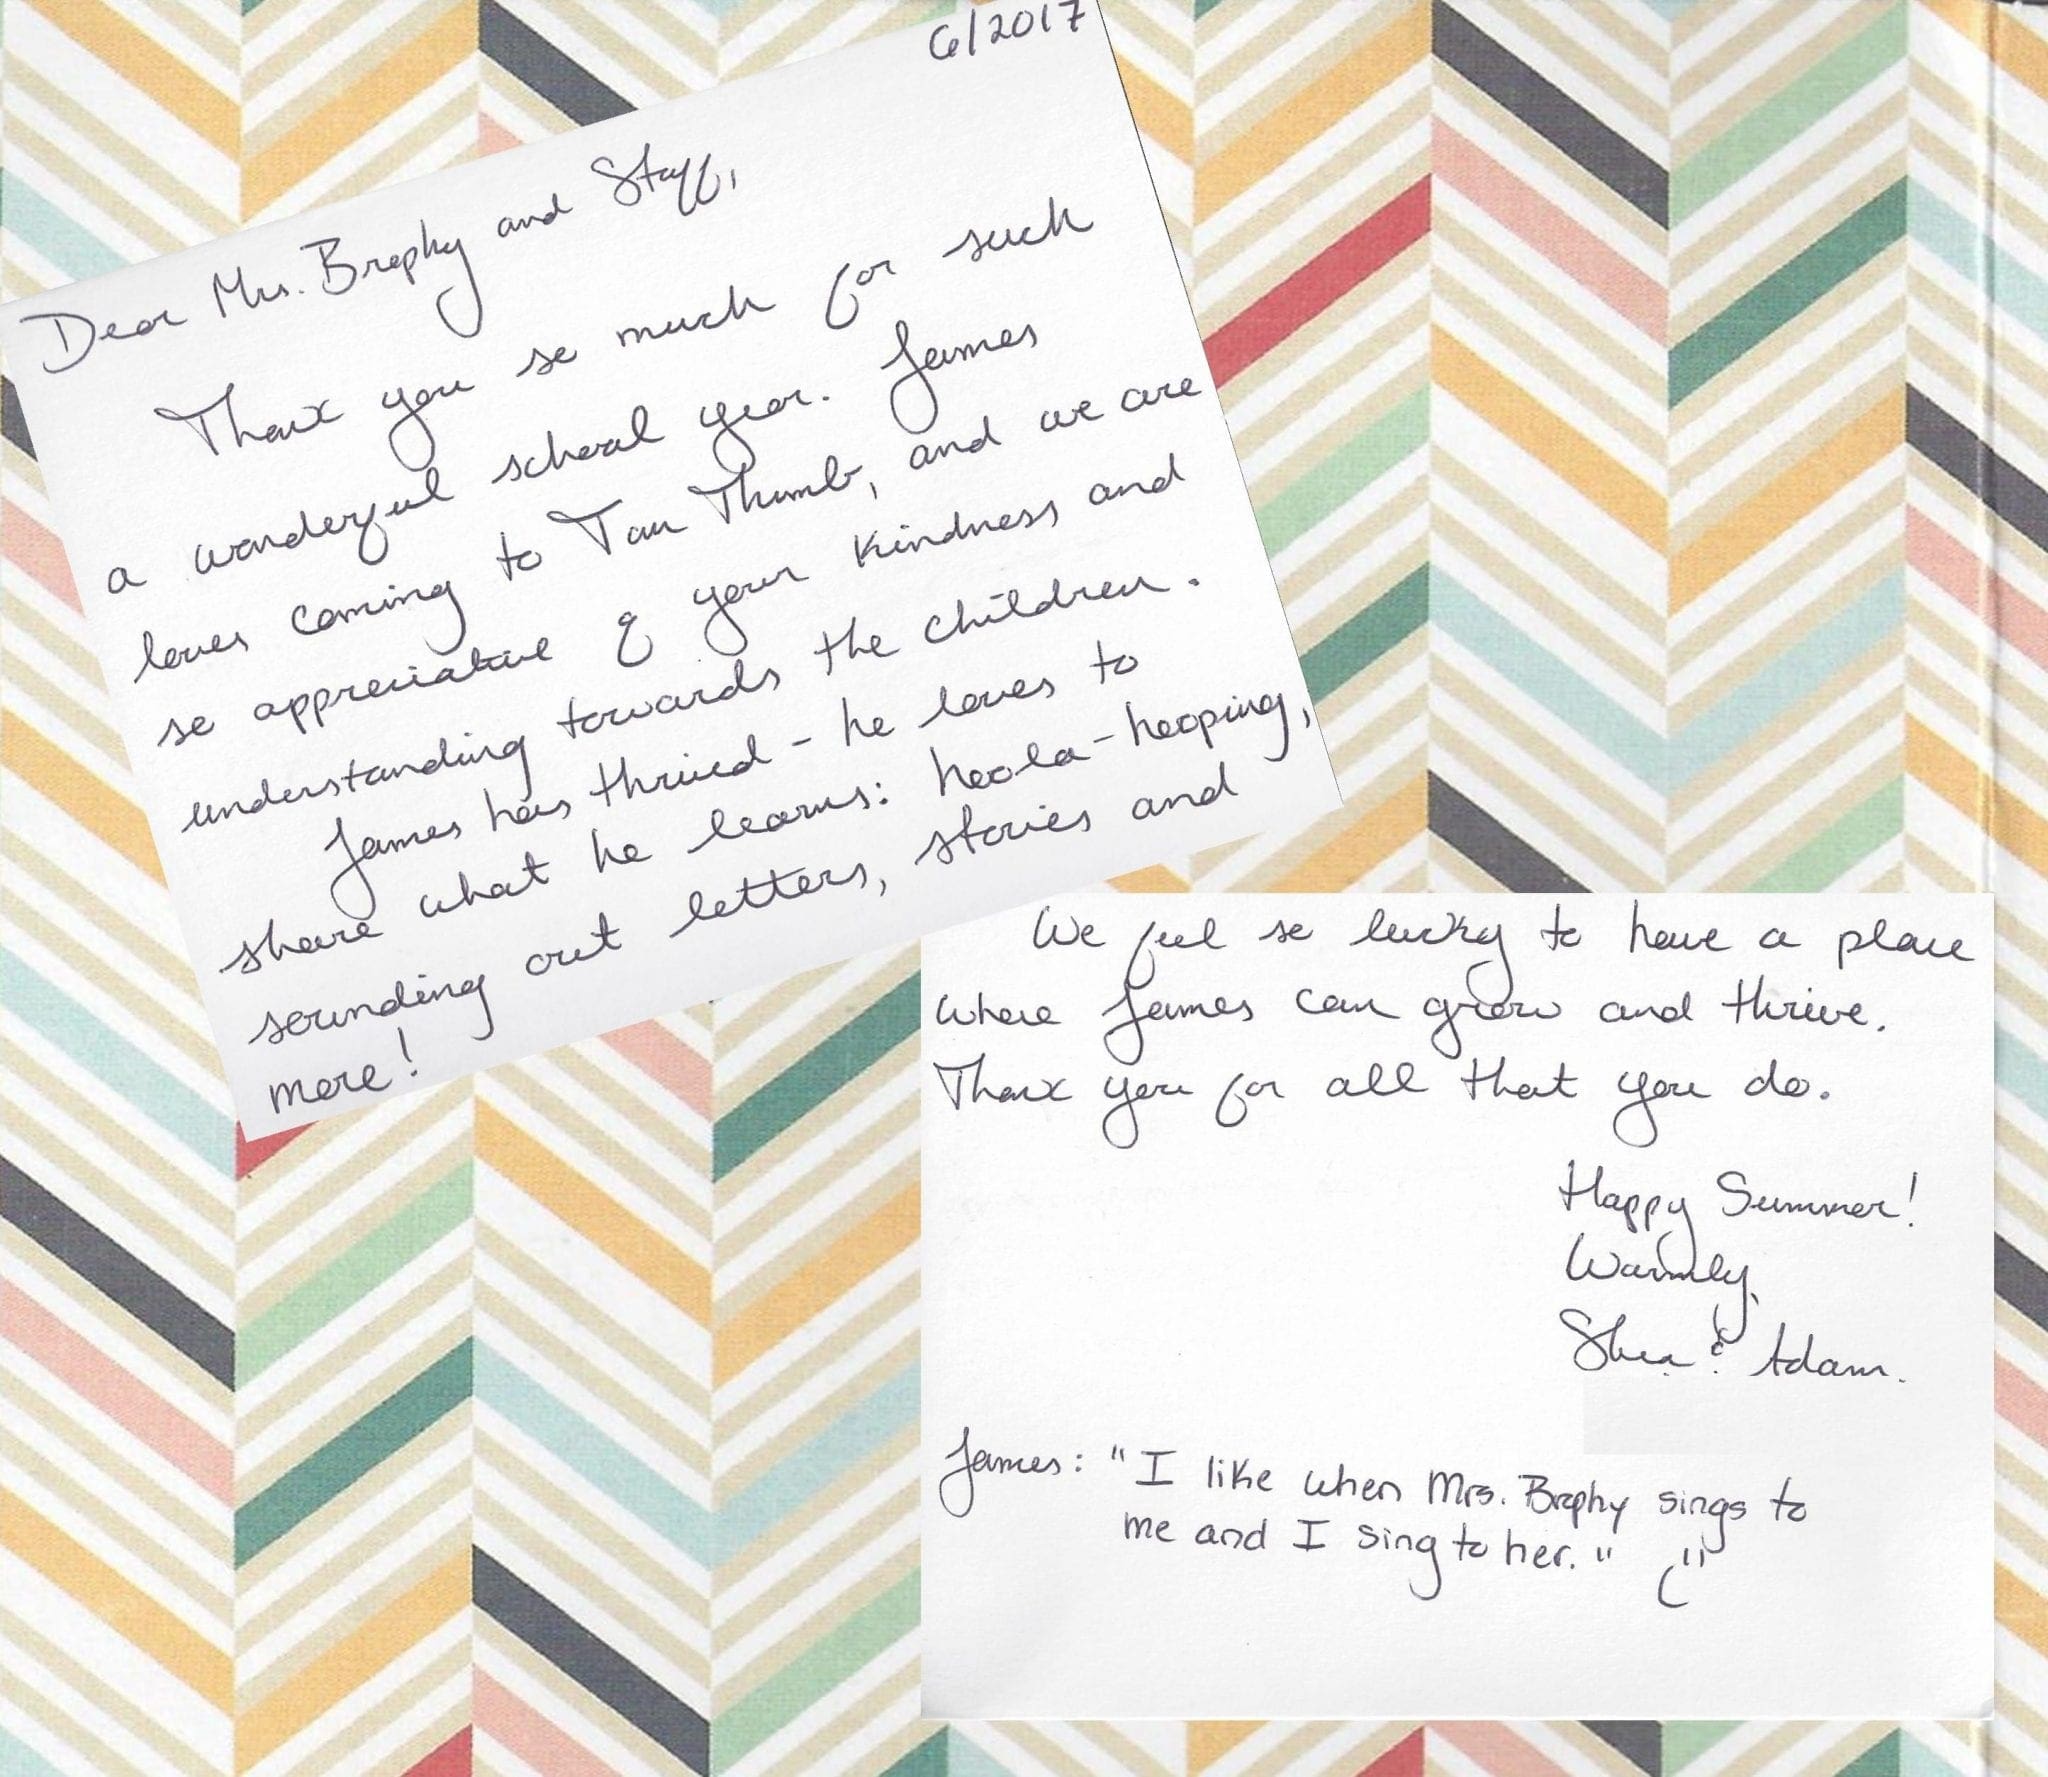 6/2017
Dear Mrs. Brophy and Staff,
Thank you so much for such
a wonderful school year. James
loves coming to Tom Thumb, and we are
so appreciative of your kindness and
understanding towards the children.
James has thrived - he loves to
share what he learns: hoola-hooping,
sounding out letters, stories and
more!
We feel so lucky to have a place
where James can grow and thrive.
Thank you for all that you do.
Happy Summer!
Warmly,
Shea & Adam.
James: "I like when Mrs. Brophy sings to
me and I sing to her."